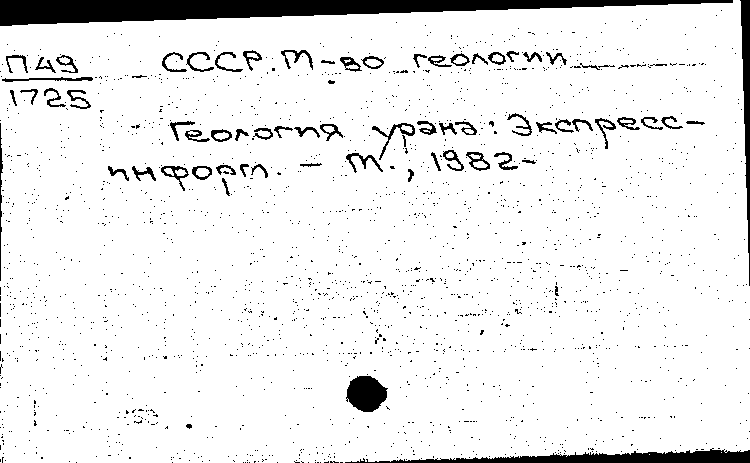 П49 СССР. М-во геологии
1725
Геология урана: Экспресс-
информ. – М., 1982-